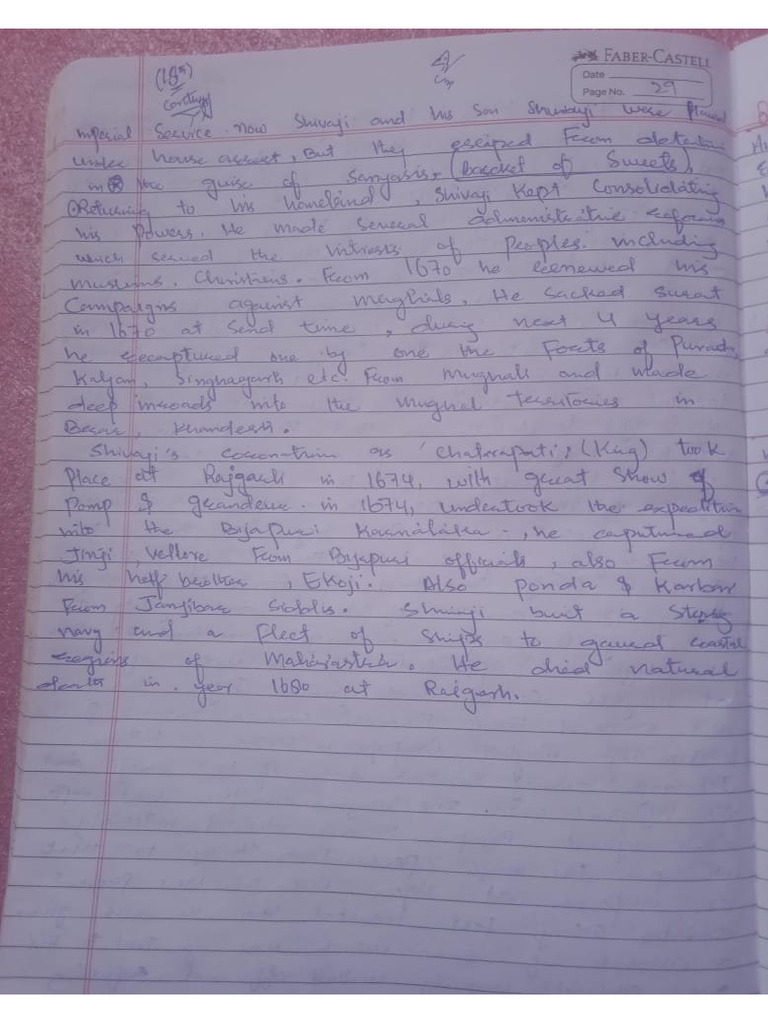 FABER-CASTELL
Date
Page No. 29
(18th)
Continue
Imperial Service. Now Shivaji and his Son Shambaji were placed
under house arrest, But they escaped From detention
in the guise of Sanyasis. (Basket of Sweets)
Returning to his homeland, Shivaji Kept Consolidating
his Powers. He made Several administrative reforms
which served the intrests of Peoples. including
muslims, Christians. From 1670 he renewed his
Campaigns against Mughals, He sacked Surat
in 1670 at Second time, during next 4 years
he recaptured one by one the Forts of Purandar,
Kalyan, Singhagarh etc. From mughals and made
deep inroads into the mughal territories in
Berar, Khandesh.
Shivaji's coronation as 'Chatrapati' (King) took
Place at Rajgarh in 1674, with great Show of
Pomp & grandeur. in 1674, undertook the expedition
into the Bijapuri Karnataka, he captured
Jinji, Vellore From Bijapuri officials, also From
his half brother, Ekoji. Also Ponda & Karwar
From Janjibar Siddis. Shivaji built a Strong
navy and a fleet of Ships to guard coastal
regions of Maharastra. He died natural
death in year 1680 at Raigarh.